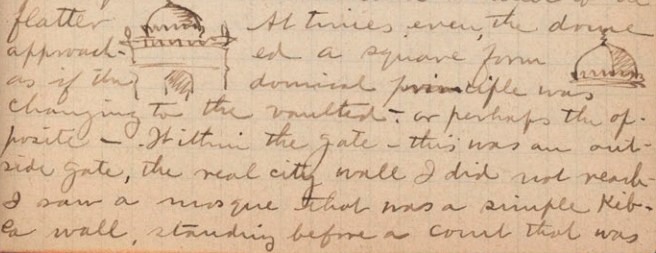 flatter At times even, the dome
approach- ed a square form
as if the domical principle was
changing to the vaulted - or perhaps the op-
posite - . Within the gate - this was an out-
side gate, the real city wall I did not reach -
I saw a mosque that was a simple Kib-
la wall, standing before a court that was